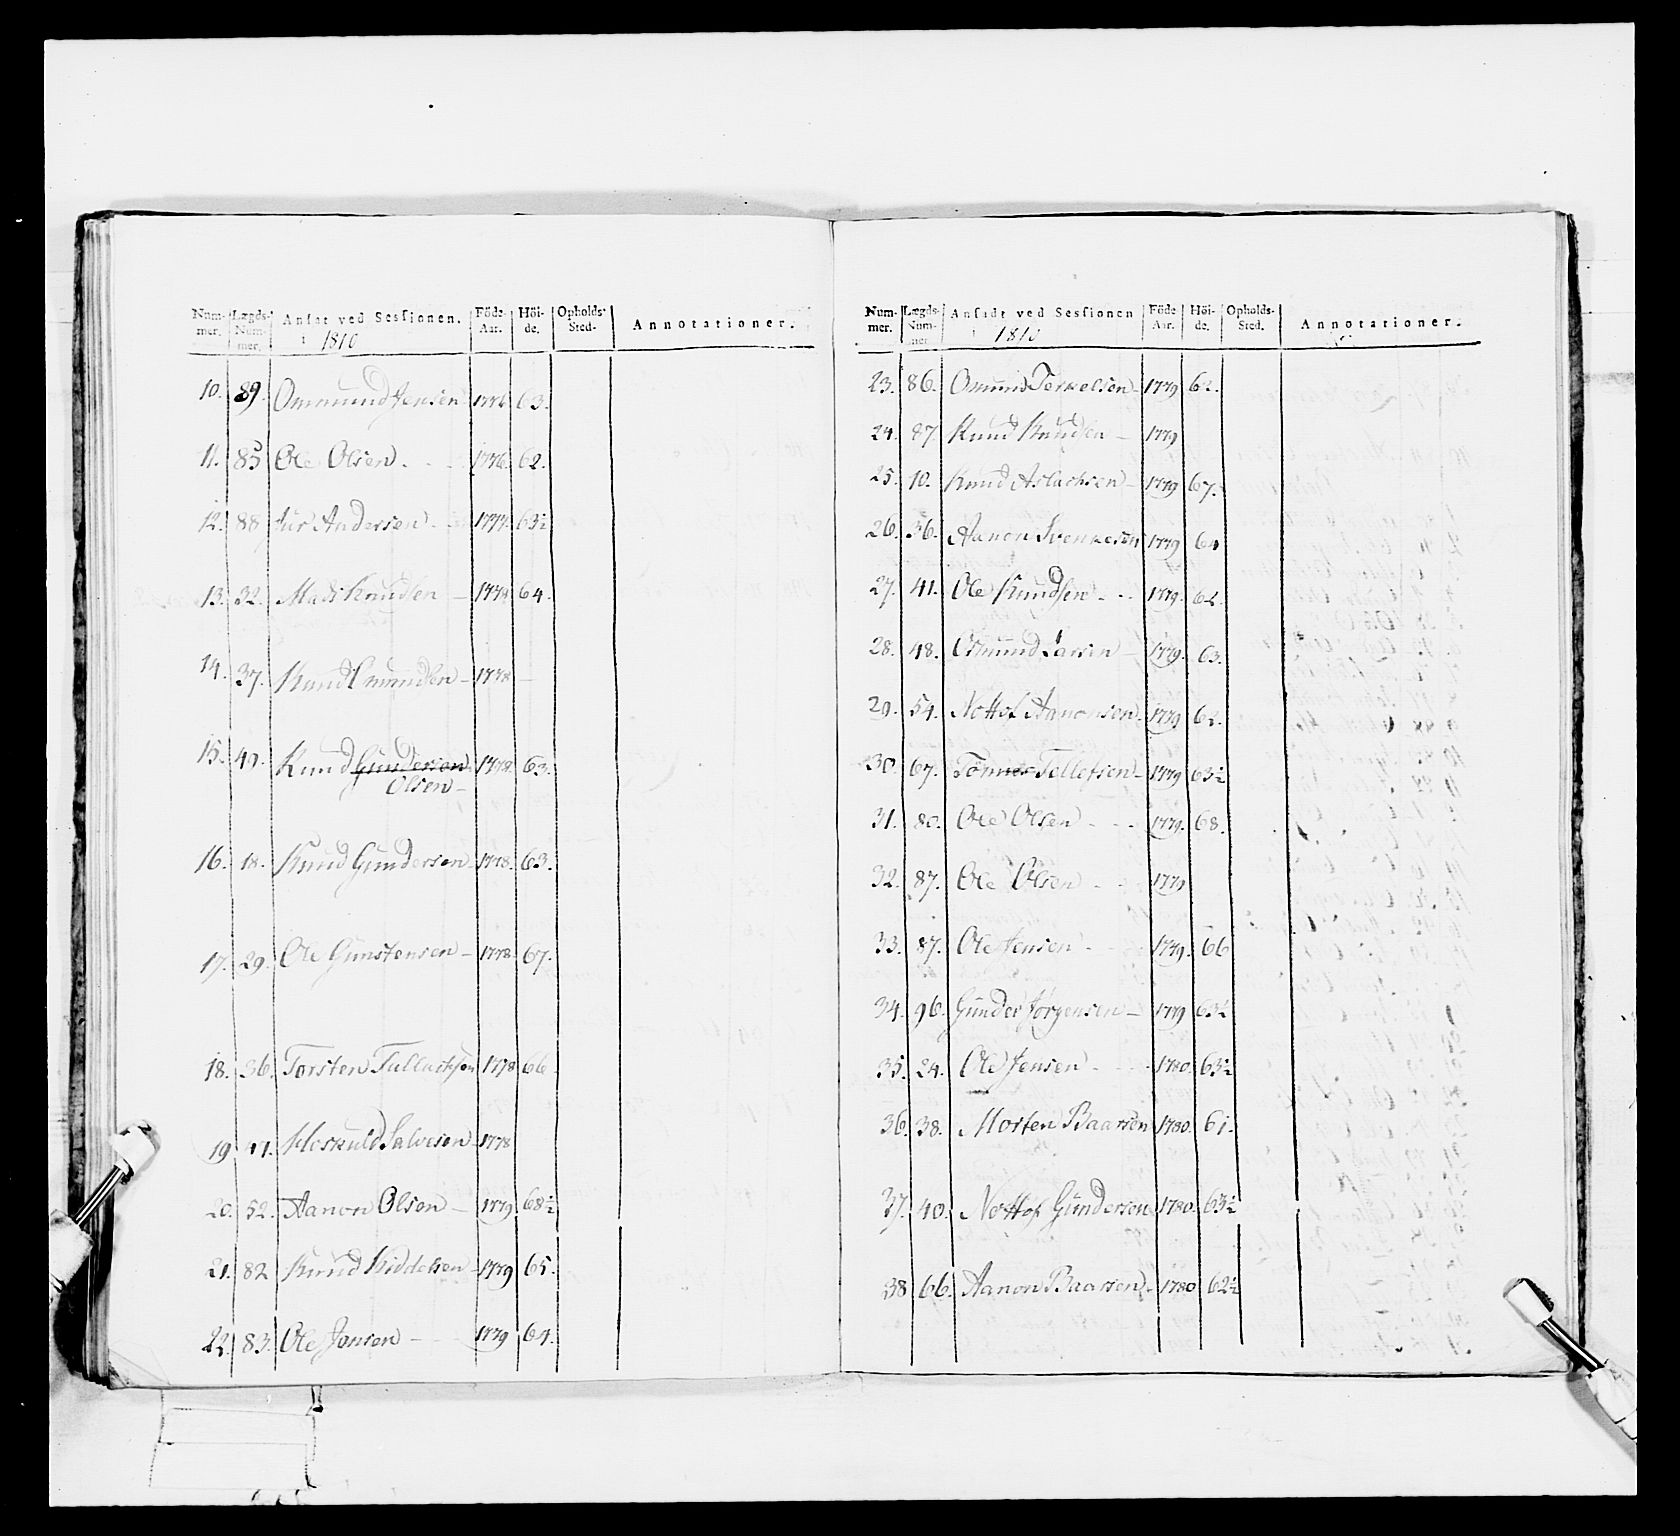 Num- mer. Lægds- Num- mer. Ansat ved Sessionen. i 1810 Föde Aar. Höi- de. Opholds- Sted. Annotationer.
10. 89. Ommund Jensen 1776 63.
11. 85 Ole Olsen. 1776. 62.
12. 88 Jur Andersen. 1777. 63½
13. 32. Mads Knudsen 1778 64.
14. 37. Knud Omundsen 1778
15. 40. Knud Gundersen 1778 63.
Olsen
16. 18. Knud Gundersen 1778. 63.
17. 29. Ole Gunstensen 1778 67.
18. 36. Torsten Tallachsen 1778 66
19 41. Heskuld Salvesen 1778
20. 52. Aanon Olsen 1779 68½
21. 82 Knud Kiddelsen 1779 65.
22. 83. Ole Jensen 1779 64.
Num- mer. Lægds- Num- mer Ansadt ved Sessionen i 1810 Föde Aar. Höi- de. Opholds- Sted. Annotationer.
23. 86. Omund Terkelsen 1779 62.
24. 87. Knud Knudsen 1779
25. 10. Knud Aslachsen 1779 67.
26. 36. Aanon Svenkesen 1779 64
27. 41. Ole Knudsen. 1779. 62.
28. 48. Osmund Larsen 1779. 63.
29. 54. Nottof Aanonsen. 1779 62.
30. 67. Tönnes Tellefsen 1779 63½
31. 80. Ole Olsen 1779. 68.
32. 87. Ole Olsen 1779
33. 87. Ole Jensen 1779. 66
34. 96. Gunder Jörgensen 1779 63½
35. 24. Ole Jensen 1780. 63½
36. 38. Morten Baarsen 1780. 61.
37. 40. Nottof Gundersen 1780. 63½
38 66. Aanon Baarsen. 1780 62½